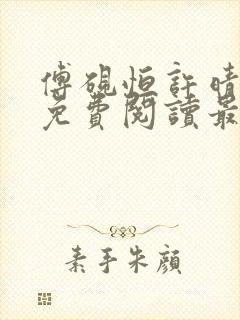 傅硯恒許晴
免費閱讀最
素手朱顏